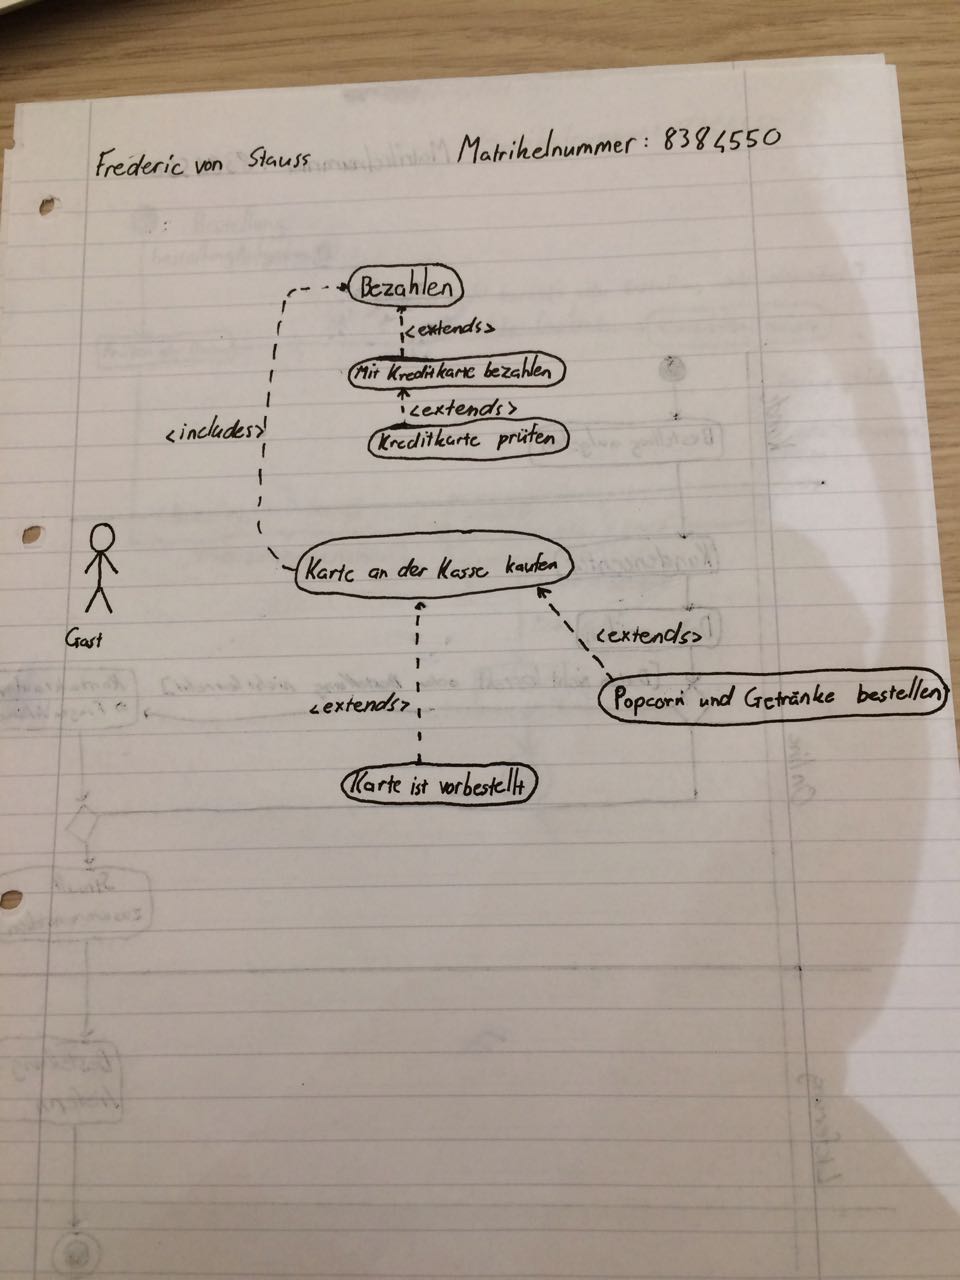 Frederic von Stauss
Matrikelnummer: 8384550
Bezahlen
<extends>
Mit Kreditkarte bezahlen
<extends>
<includes>
Kreditkarte prüfen
Karte an der Kasse kaufen
Gast
<extends>
Popcorn und Getränke bestellen
<extends>
Karte ist vorbestellt